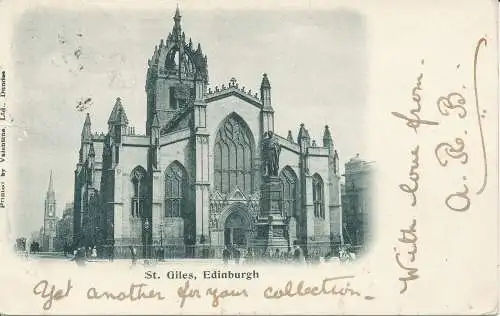 Printed by Valentine Ltd., Dundee
St. Giles, Edinburgh
Yet another for your collection.
With love from
A. R. B.